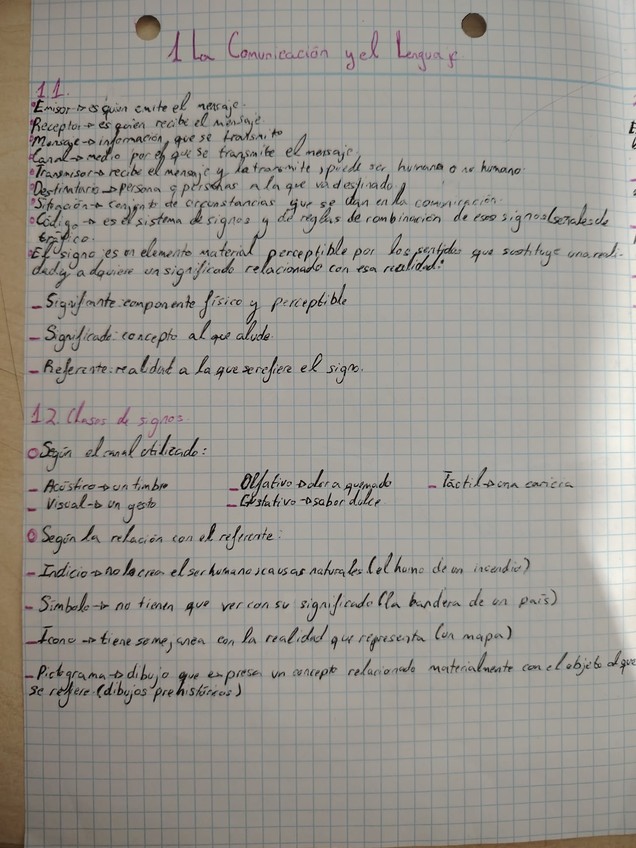 1 La Comunicación y el Lenguaje
1.1.
Emisor → es quien emite el mensaje.
Receptor → es quien recibe el mensaje.
Mensaje → información que se transmite
Canal → medio por el que se transmite el mensaje.
Transmisor → recibe el mensaje y la transmite, puede ser humano o no humano.
Destinatario → persona o personas a la que va destinado
Situación → conjunto de circunstancias que se dan en la comunicación.
Código → es el sistema de signos y de reglas de combinación de esos signos (señales de
tráfico.
El signo es un elemento material perceptible por los sentidos que sustituye una reali-
dad y adquiere un significado relacionado con esa realidad:
- Significante: componente físico y perceptible
- Significado: concepto al que alude.
- Referente: realidad a la que se refiere el signo.
1.2. Clases de signos
Según el canal utilizado:
- Acústico → un timbre - Olfativo → olor a quemado - Táctil → una caricia
- Visual → un gesto - Gustativo → sabor dulce
Según la relación con el referente:
- Indicio → no la crea el ser humano, causas naturales (el humo de un incendio)
- Símbolo → no tienen que ver con su significado (la bandera de un país)
- Icono → tiene semejanza con la realidad que representa (un mapa)
- Pictograma → dibujo que expresa un concepto relacionado materialmente con el objeto al que
se refiere (dibujos prehistóricos)